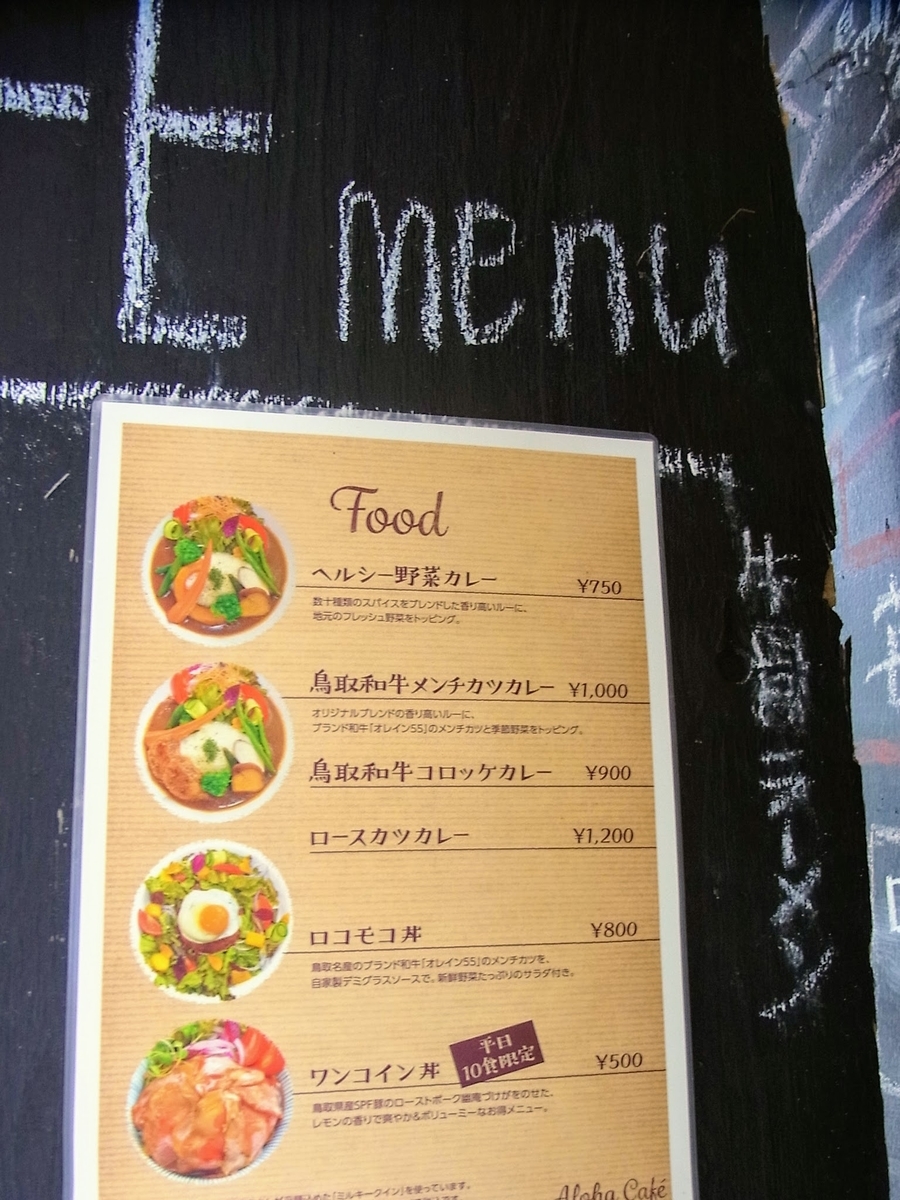 menu
Food
ヘルシー野菜カレー ¥750
数十種類のスパイスをブレンドした香り高いルーに、
地元のフレッシュ野菜をトッピング。
鳥取和牛メンチカツカレー ¥1,000
オリジナルブレンドの香り高いルーに、
ブランド和牛「オレイン55」のメンチカツと季節野菜をトッピング。
鳥取和牛コロッケカレー ¥900
ロースカツカレー ¥1,200
ロコモコ丼 ¥800
鳥取名産のブランド和牛「オレイン55」のメンチカツを、
自家製デミグラスソースで。新鮮野菜たっぷりのサラダ付き。
平日
10食限定
ワンコイン丼 ¥500
鳥取県産SPF豚のローストポーク幽庵づけがをのせた、
レモンの香りで爽やか&ボリューミーなお得メニュー。
「ミルキークイン」を使っています。
Aloha Café
牛骨ラーメン